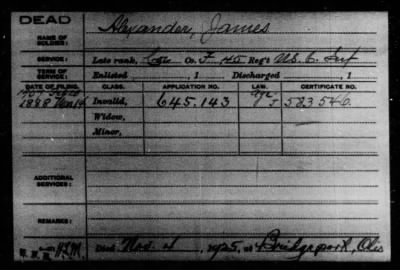 DEAD
NAME OF SOLDIER: Alexander, James
SERVICE: Late rank, Co. F, 45 Reg't U.S.C. Inf
TERM OF SERVICE: Enlisted , 1 Discharged , 1
DATE OF FILING. CLASS. APPLICATION NO. LAW. CERTIFICATE NO.
1888 Invalid, 645.143 583546.
Widow,
Minor,
ADDITIONAL SERVICES:
REMARKS:
Died Nov. 4, 1925, at Bridgeport, Ohio